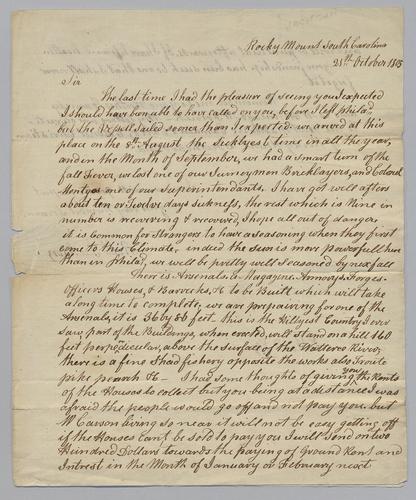 Rocky Mount South Carolina
21th October 1803
Sir
The last time I had the pleasure of seeing you I expected
I should have been able to have called on you, before I left philad.
but the Vessel Sailed sooner than I expected. we arived at this
place on the 9th August the Sicklyest time in all the year,
and in the Month of September, we had a smart turn of the
fall Fever, we lost one of our Bricklayers, and Colonel
one of our Superintendants. I have got well after
about ten or Twelve days sickness, the rest which is Nine in
number is recovering & recovered, I hope all out of danger,
it is Common for Strangers to have a seasoning when they first
come to this Climate, indeed the sun is more powerfull here
than in philad. we will be pritty well seasoned by next fall
There is Arsenals, & Magazine Armory's Forges
officers Houses, & Barrecks, &c to be Built which will take
a long time to complete, we are prepairing for one of the
Arsenals, it is 36 by 86 feet. this is the Hillyest Country I ever
saw, part of the Buildings, when erected, will stand on a hill 160
feet perpedicular, above the surface of the River,
there is a fine Shad fishery opposite the works also Trout
pike pearch &c — I had some thoughts of giveing you the Rents
of the Houses to collect but you being at a distance I was
afraid the people would go off and not pay you, but
Mr Carson living so near it will not be easy getting off
if the Houses cant be sold to pay you I will send on two
Hundred Dollars towards the paying of Ground Rent and
Intrest in the Month of January or February next